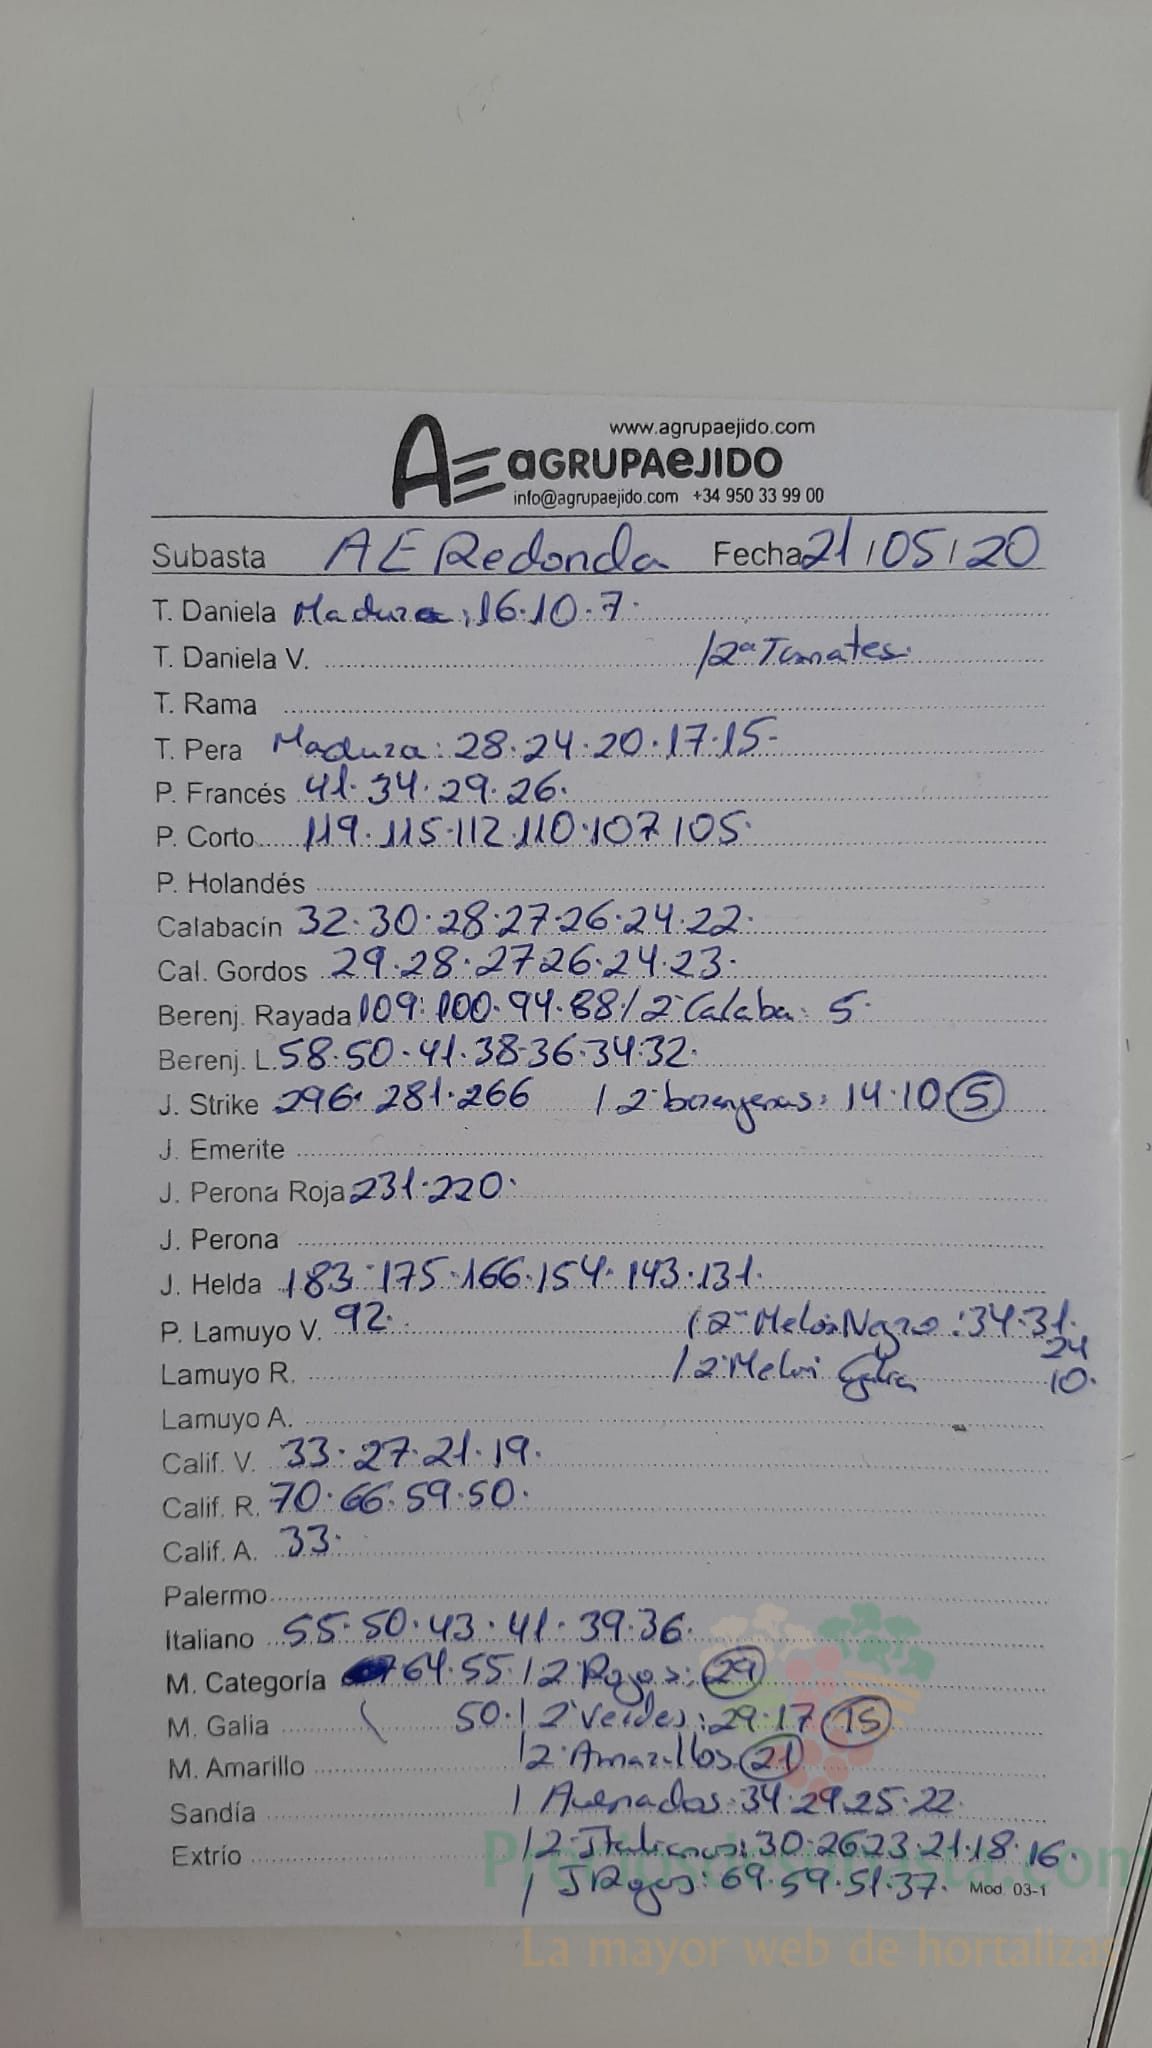 www.agrupaejido.com
AE aGRUPAeJIDO
info@agrupaejido.com +34 950 33 99 00
Subasta AE Redonda Fecha 21/05/20
T. Daniela Madura: 16·10·7·
T. Daniela V. /2ª Tomates·
T. Rama
T. Pera Madura: 28·24·20·17·15-
P. Francés 41·34·29·26·
P. Corto 119·115·112·110·107 105·
P. Holandés
Calabacín 32·30·28·27·26·24·22·
Cal. Gordos 29·28·27 26·24·23·
Berenj. Rayada 109·100·94·88·/2ª Calaba· 5·
Berenj. L. 58·50·41·38·36·34·32·
J. Strike 296·281·266 /2ª berenjenas: 14·10 5
J. Emerite
J. Perona Roja 231·220·
J. Perona
J. Helda 183·175·166·154·143·131·
P. Lamuyo V. 92· /2ª Melón Negro: 34·31·
24
Lamuyo R. /2ª Melón Galia 10·
Lamuyo A.
Calif. V. 33·27·21·19·
Calif. R. 70·66·59·50·
Calif. A. 33·
Palermo
Italiano 55·50·43·41·39·36·
M. Categoría 64·55·/2ª Rojos: 29
M. Galia 50·/2ª Verdes: 29·17 15
M. Amarillo /2ª Amarillos 21
Sandía / Asurados·34·29·25·22
Extrío /2ª Italianos: 30·26 23·21·18·16·
/ I Rojos: 69·59·51·37· Mod. 03-1
Preciosdesubasta.com
La mayor web de hortalizas